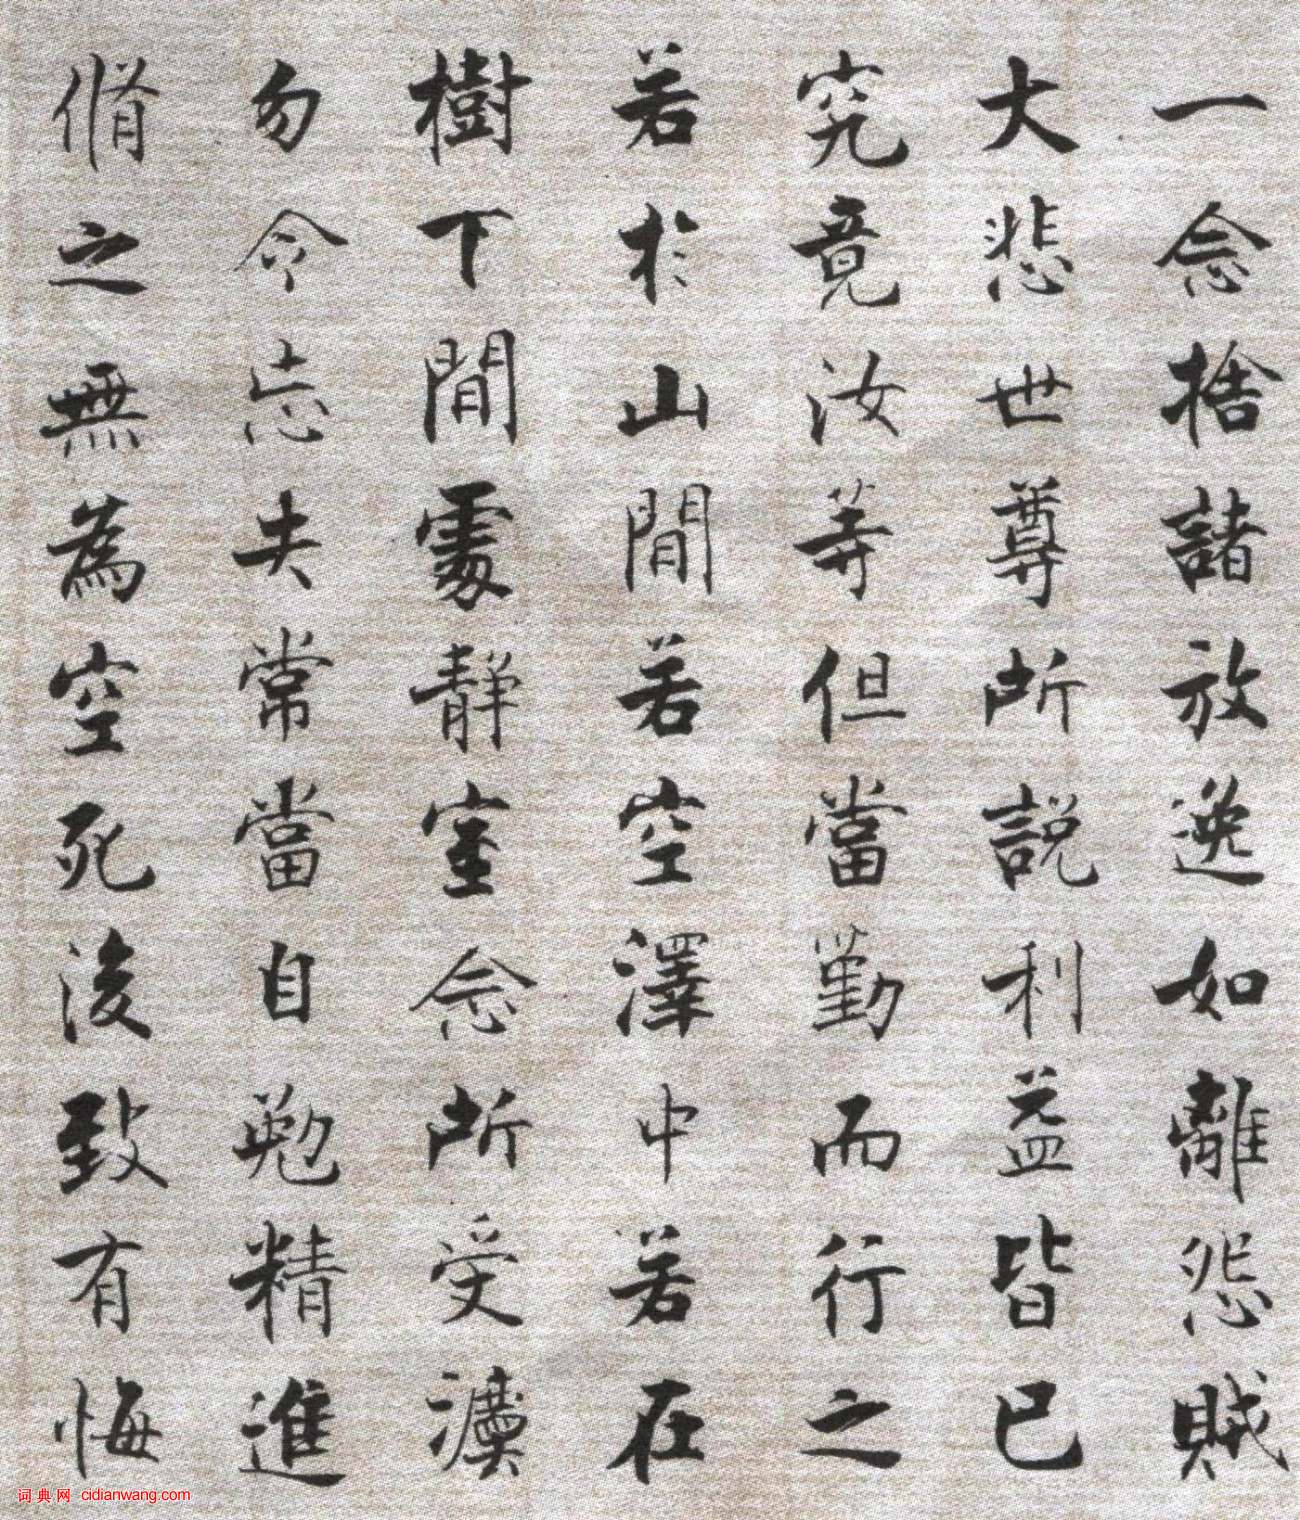 一念捨諸放逸如離怨賊
大悲世尊所説利益皆已
究竟汝等但當勤而行之
若於山間若空澤中若在
樹下間處静室念所受灋
勿令忘失常當自勉精進
脩之無為空死後致有悔
词典网 cidianwang.com